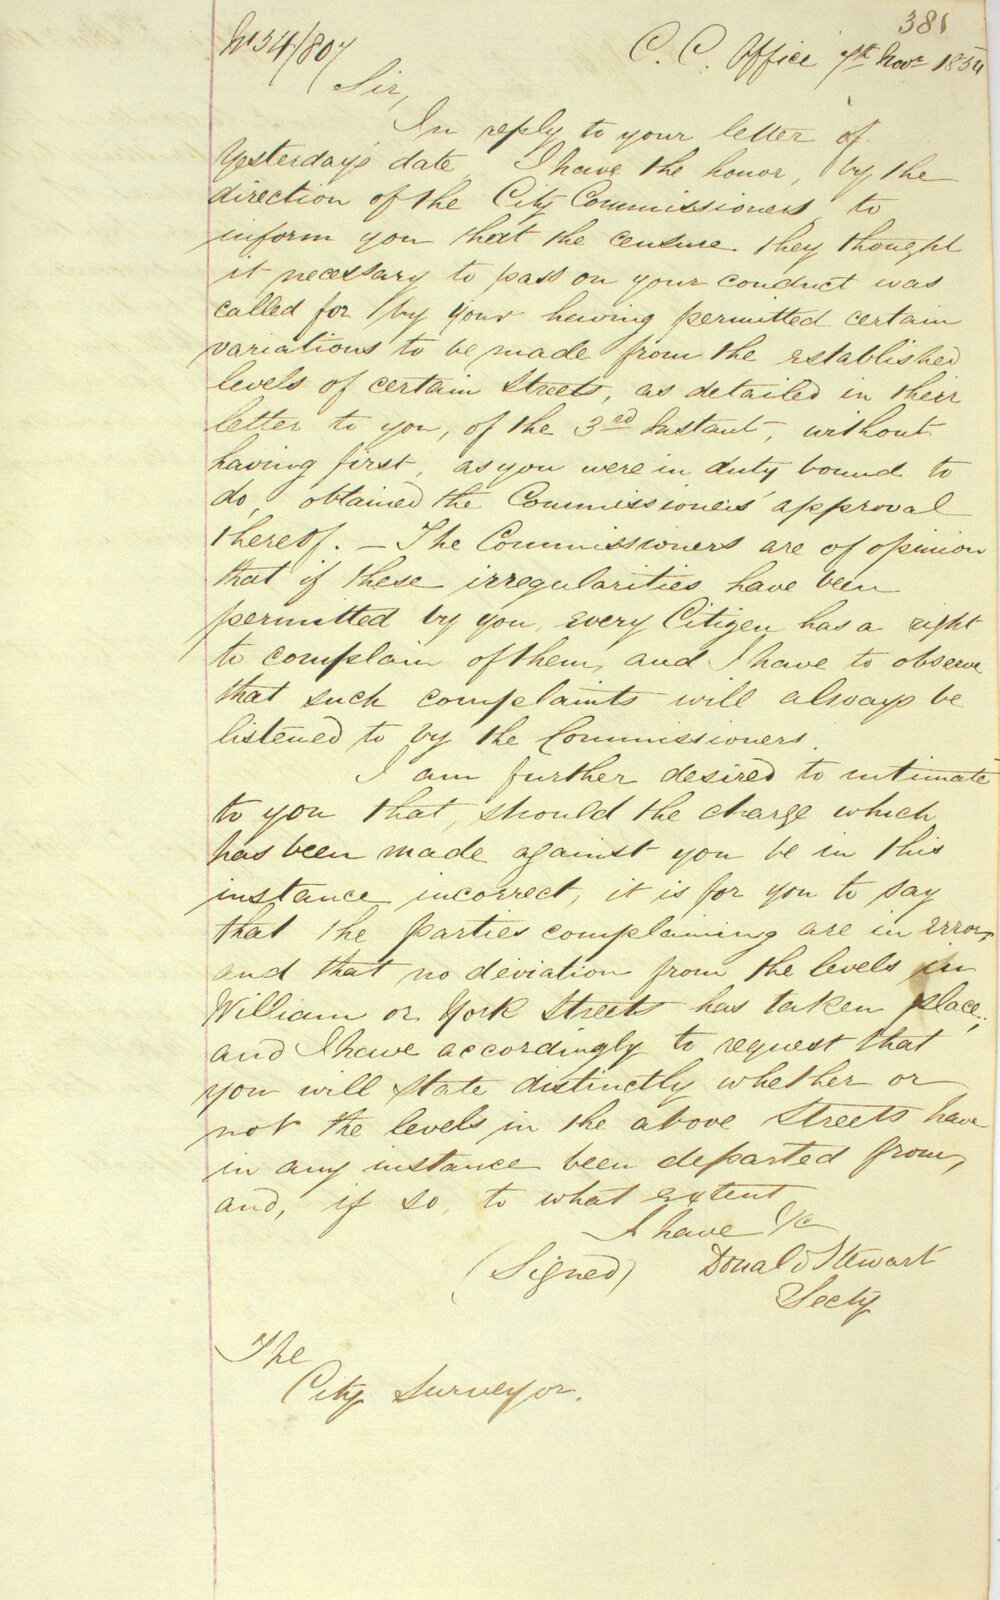 381
No 54/807 C. C. Office 7th Novr 1854
Sir,
In reply to your letter of
Yesterday's date, I have the honor, by the
direction of the City Commissioners, to
inform you that the censure they thought
it necessary to pass on your conduct was
called for by your having permitted certain
variations to be made from the established
levels of certain Streets, as detailed in their
letter to you, of the 3rd Instant, without
having first, as you were in duty bound to
do, obtained the Commissioners' approval
thereof. — The Commissioners are of opinion
that if these irregularities have been
permitted by you, every Citizen has a right
to complain of them, and I have to observe
that such complaints will always be
listened to by the Commissioners.
I am further desired to intimate
to you that, should the charge which
has been made against you be in this
instance incorrect, it is for you to say
that the parties complaining are in error,
and that no deviation from the levels in
William or York Streets has taken place;
and I have accordingly to request that
you will state distinctly whether or
not the levels in the above Streets have
in any instance been departed from,
and, if so, to what extent
I have &c
(Signed) Donald Stewart
Secty
The
City Surveyor.